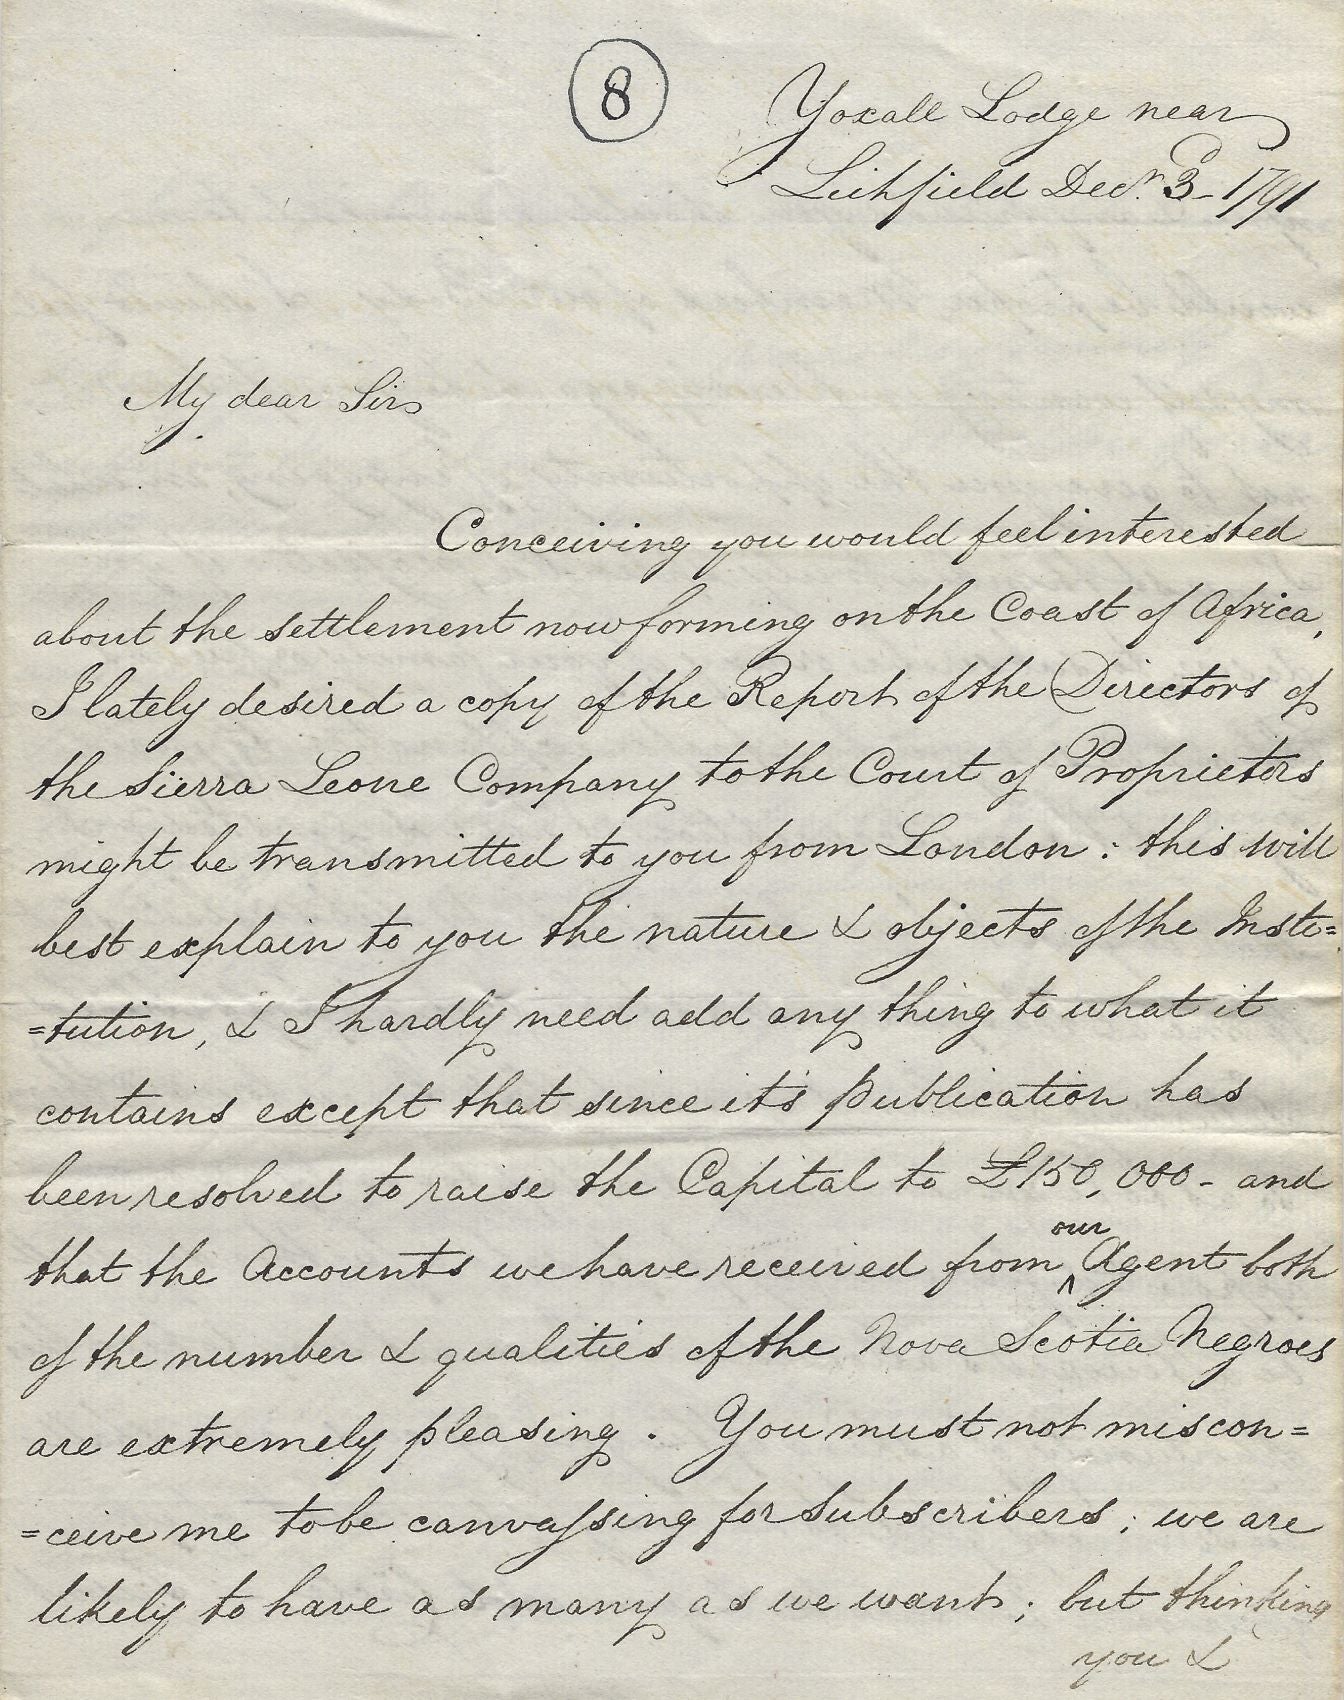 8
Yoxall Lodge near
Lichfield Decr. 3 - 1791
My dear Sir
Conceiving you would feel interested
about the settlement now forming on the Coast of Africa,
I lately desired a copy of the Report of the Directors of
the Sierra Leone Company to the Court of Proprietors
might be transmitted to you from London : this will
best explain to you the nature & objects of the Insti=
=tution, & I hardly need add any thing to what it
contains except that since it's publication has
been resolved to raise the Capital to £150,000 - and
that the Accounts we have received from our Agent both
of the number & qualities of the Nova Scotia Negroes
are extremely pleasing . You must not miscon=
=ceive me to be canvassing for Subscribers ; we are
likely to have as many as we want ; but thinking
you &